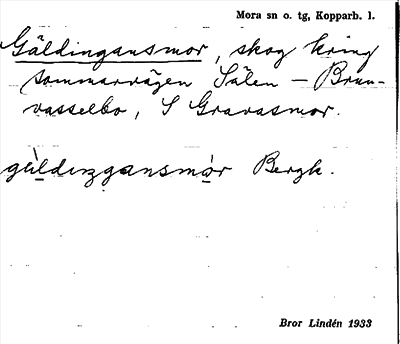 Mora sn o. tg, Kopparb. l.
Gäldingansmor, skog kring
sommarvägen Sälen – Brun-
vasselbo, S Gravasmor.
gä̀ldıŋgansmòr Bergk.
Bror Lindén 1933